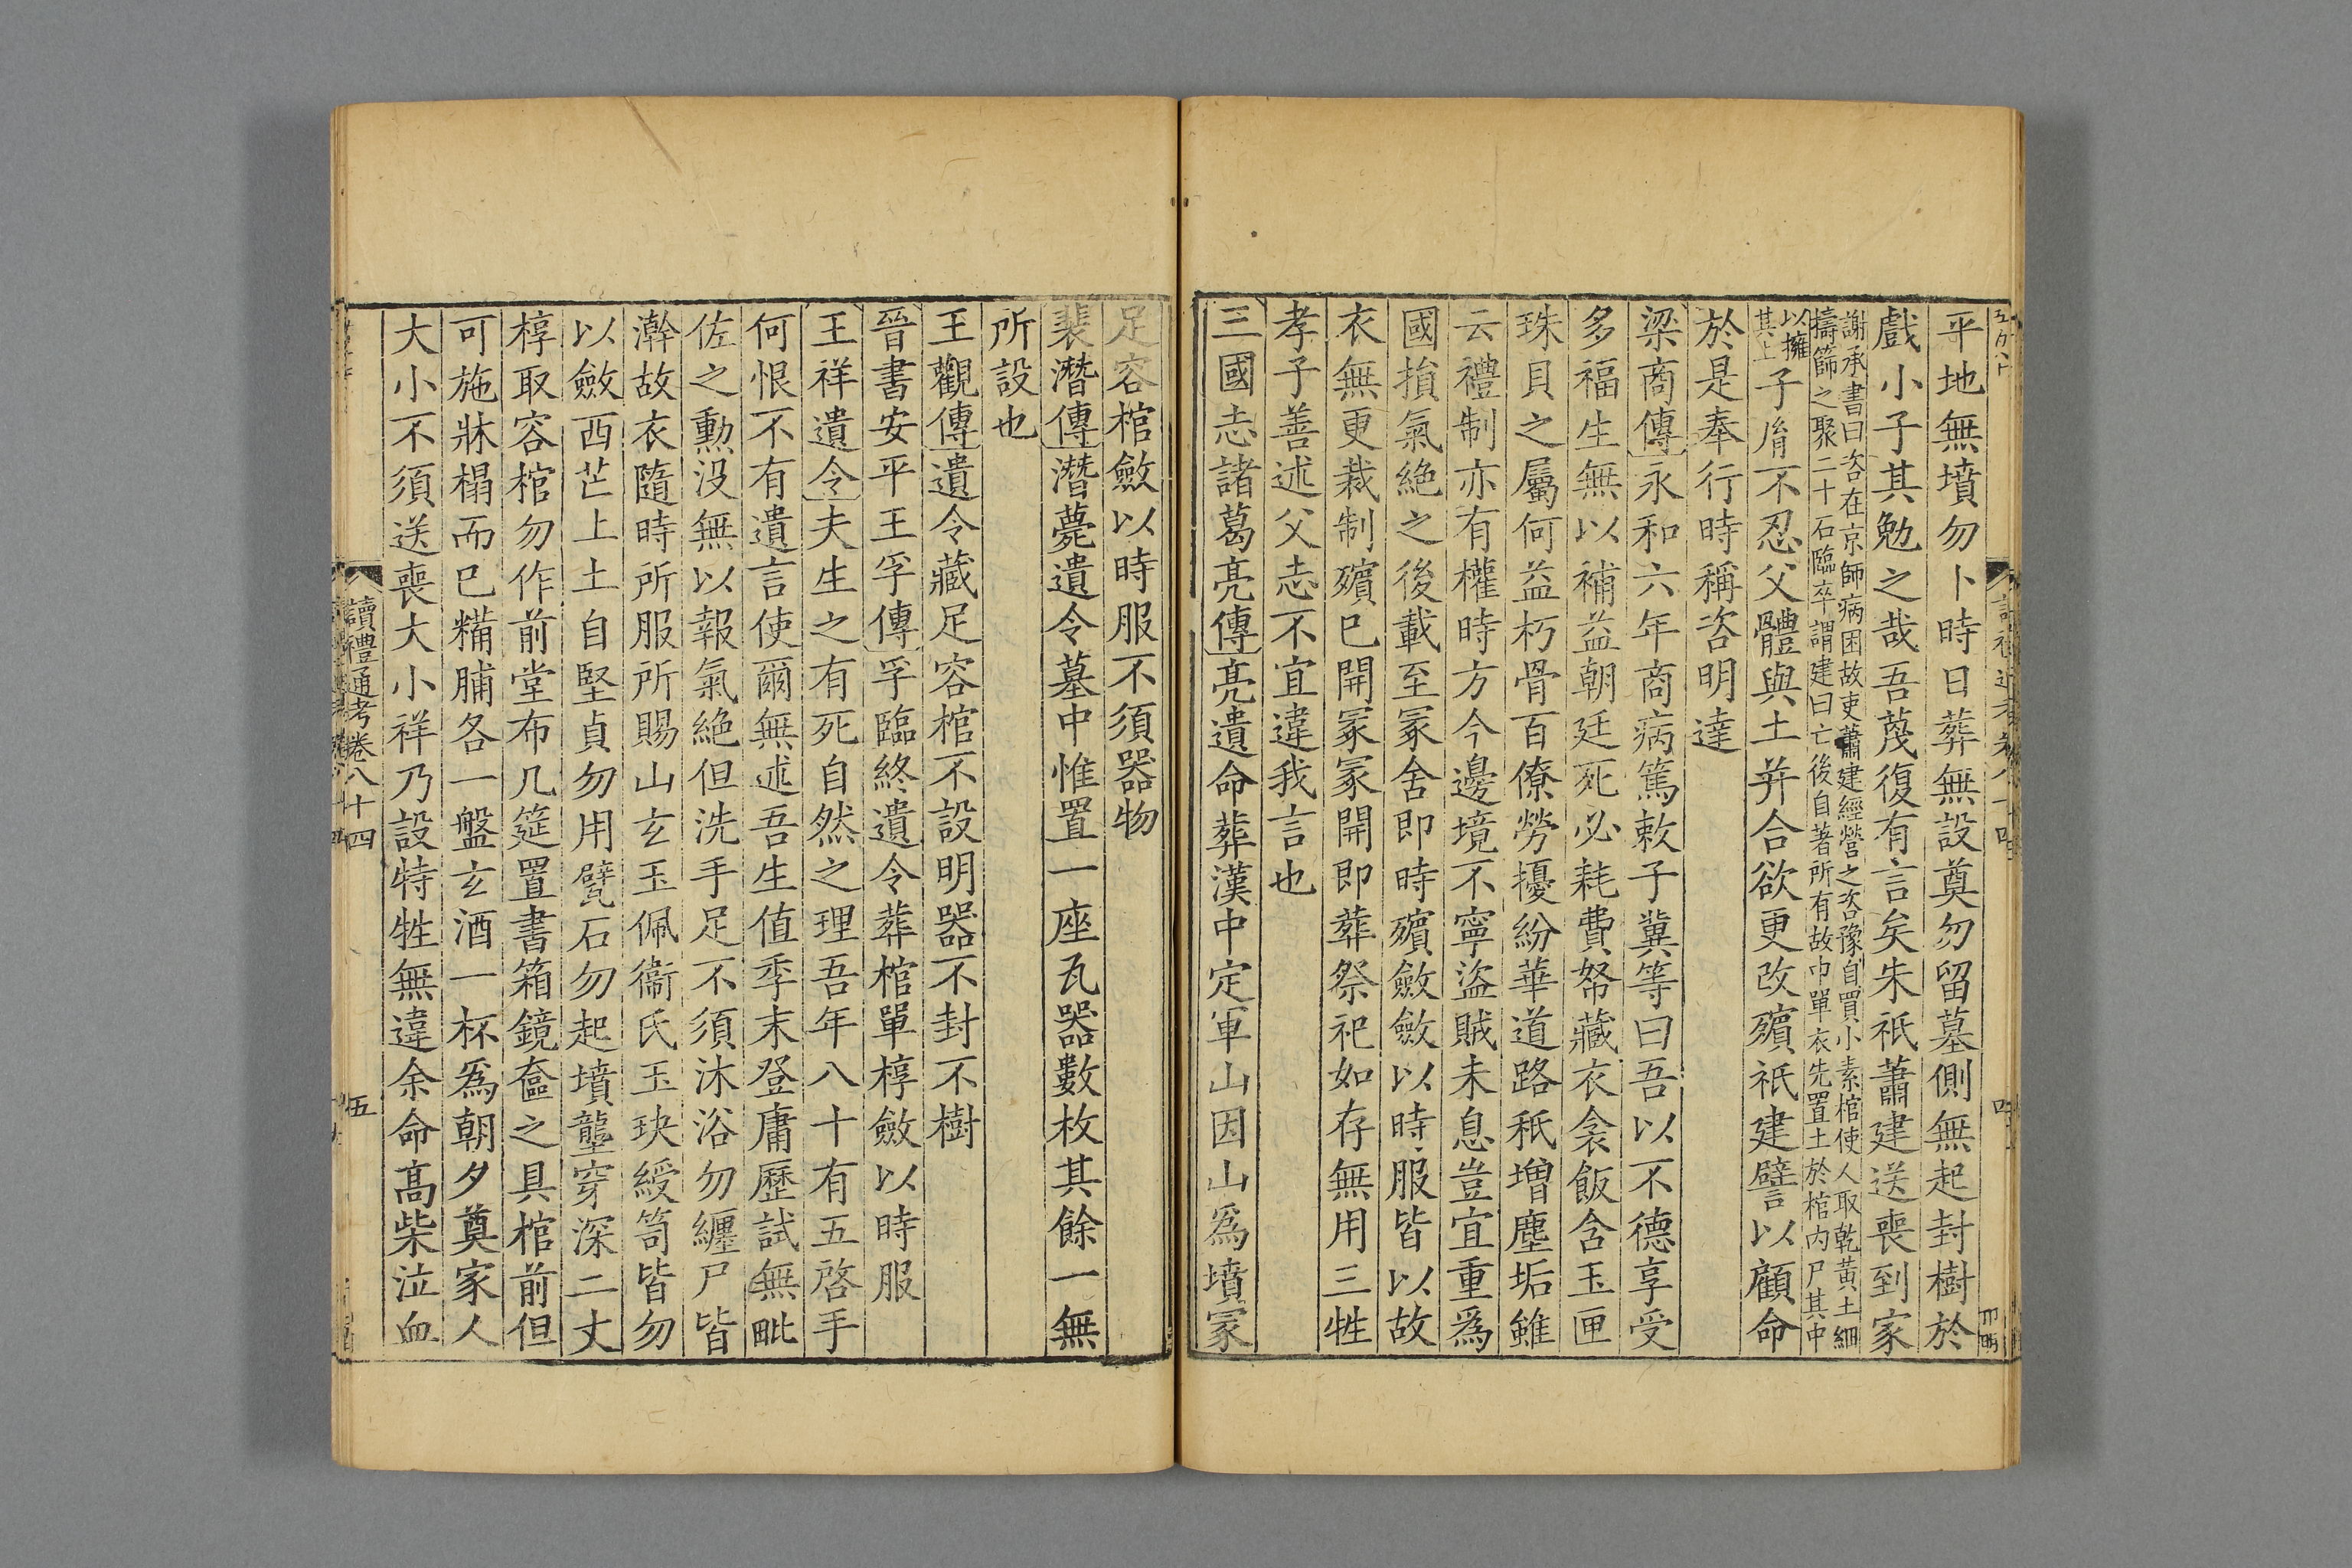 平地無墳勿卜時日葬無設奠勿留墓側無起封樹於
戲小子其勉之哉吾蔑復有言矣朱祇蕭建送喪到家
謝承書曰咨在京師病困故吏蕭建經營之咨豫自買小素棺使人取乾黃土細
擣篩之聚二十石臨卒謂建曰亡後自著所有故巾單衣先置土於棺內尸其中
以擁
其上
子胤不忍父體與土并合欲更改殯祇建譬以顧命
於是奉行時稱咨明達
梁商傳永和六年商病篤敕子冀等曰吾以不德享受
多福生無以補益朝廷死必耗費帑藏衣衾飯含玉匣
珠貝之屬何益朽骨百僚勞擾紛華道路秖增塵垢雖
云禮制亦有權時方今邊境不寧盜賊未息豈宜重爲
國損氣絕之後載至冢舍即時殯斂斂以時服皆以故
衣無更裁制殯已開冢冢開即葬祭祀如存無用三牲
孝子善述父志不宜違我言也
三國志諸葛亮傳亮遺命葬漢中定軍山因山爲墳冢
足容棺斂以時服不須器物
裴潛傳潛薨遺令墓中惟置一座瓦器數枚其餘一無
所設也
王觀傳遺令藏足容棺不設明器不封不樹
晉書安平王孚傳孚臨終遺令葬棺單椁斂以時服
王祥遺令夫生之有死自然之理吾年八十有五啓手
何恨不有遺言使爾無述吾生值季末登庸歷試無毗
佐之勳没無以報氣絕但洗手足不須沐浴勿纏尸皆
澣故衣隨時所服所賜山玄玉佩衞氏玉玦綬笥皆勿
以斂西芒上土自堅貞勿用甓石勿起墳壟穿深二丈
椁取容棺勿作前堂布几筵置書箱鏡奩之具棺前但
可施牀榻而已糒脯各一盤玄酒一杯爲朝夕奠家人
大小不須送喪大小祥乃設特牲無違余命高柴泣血
讀禮通考卷八十四
五